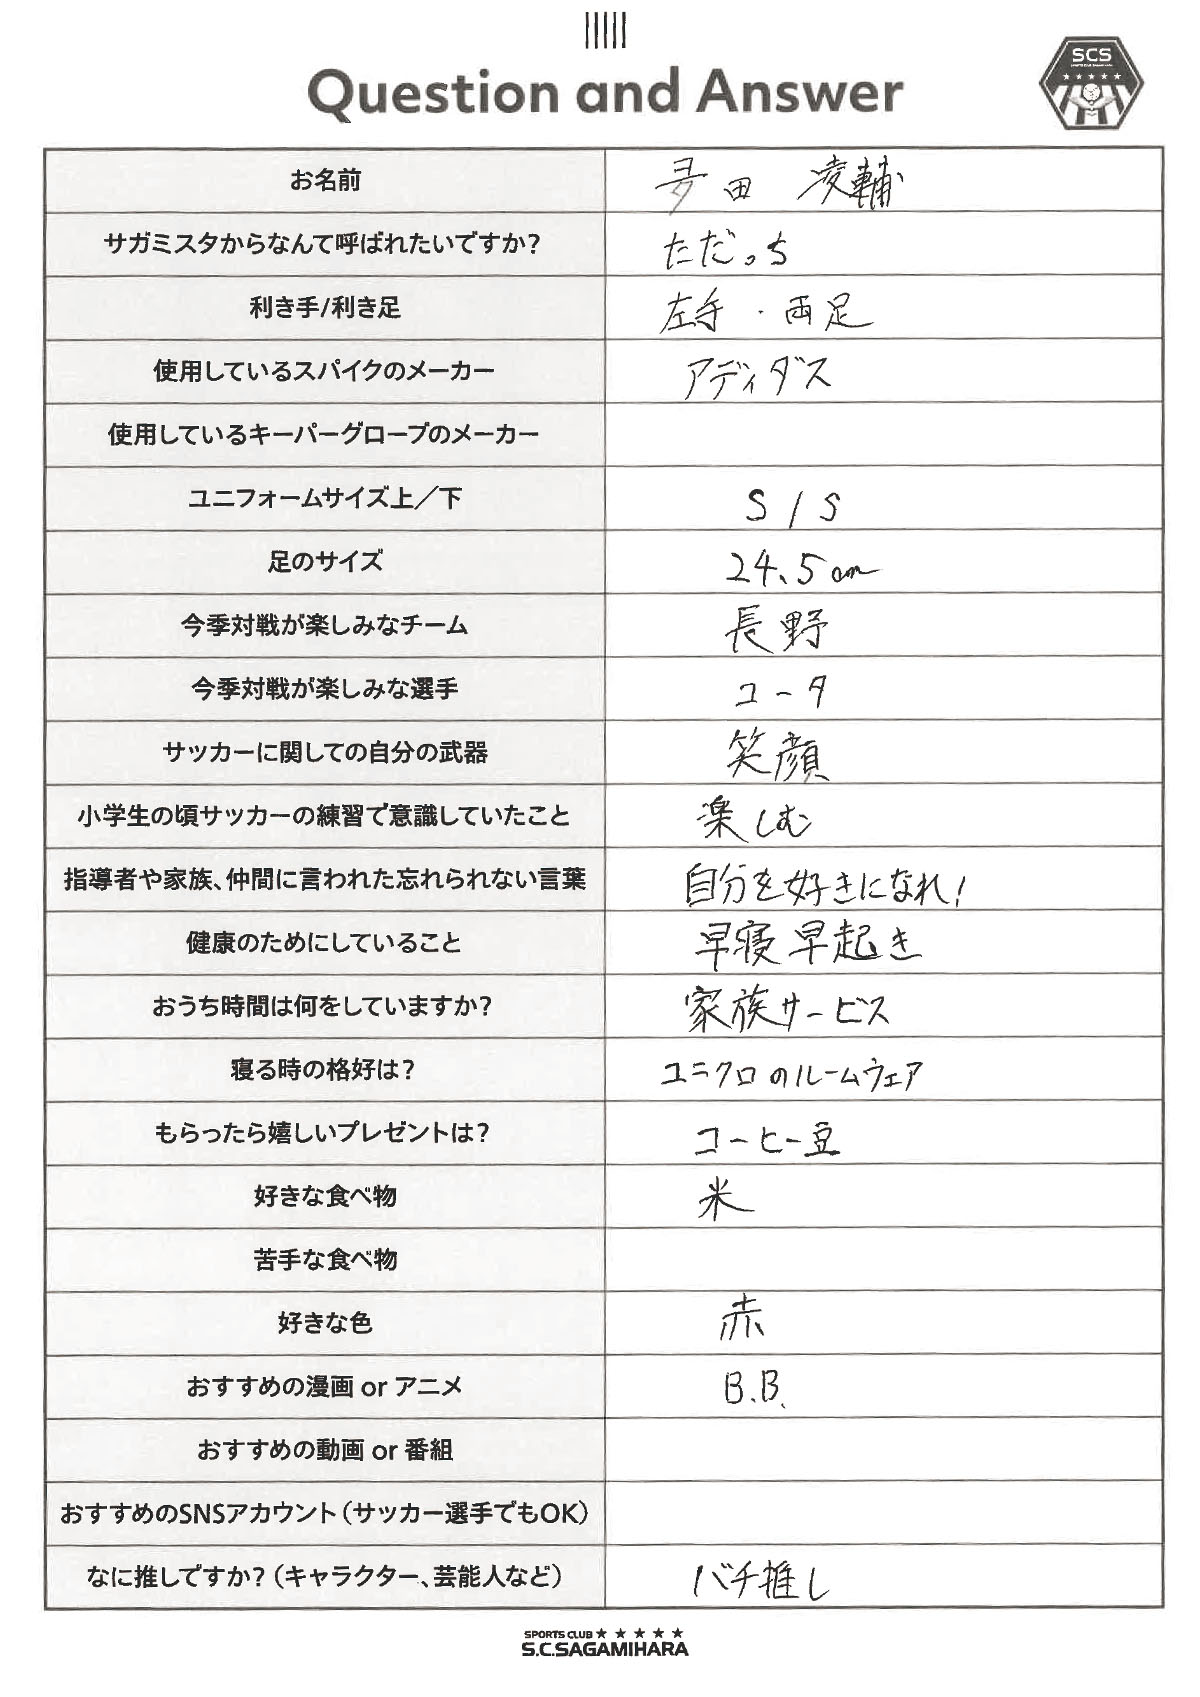 Question and Answer
SCS
お名前
多田 凌輔
サガミスタからなんて呼ばれたいですか?
ただっち
利き手/利き足
左手・両足
使用しているスパイクのメーカー
アディダス
使用しているキーパーグローブのメーカー
ユニフォームサイズ上／下
S / S
足のサイズ
24.5cm
今季対戦が楽しみなチーム
長野
今季対戦が楽しみな選手
ユータ
サッカーに関しての自分の武器
笑顔
小学生の頃サッカーの練習で意識していたこと
楽しむ
指導者や家族、仲間に言われた忘れられない言葉
自分を好きになれ!
健康のためにしていること
早寝早起き
おうち時間は何をしていますか?
家族サービス
寝る時の格好は?
ユニクロのルームウェア
もらったら嬉しいプレゼントは?
コーヒー豆
好きな食べ物
米
苦手な食べ物
好きな色
赤
おすすめの漫画 or アニメ
B.B.
おすすめの動画 or 番組
おすすめのSNSアカウント(サッカー選手でもOK)
なに推しですか?(キャラクター、芸能人など)
バチ推し
SPORTS CLUB ★ ★ ★ ★ ★
S.C.SAGAMIHARA